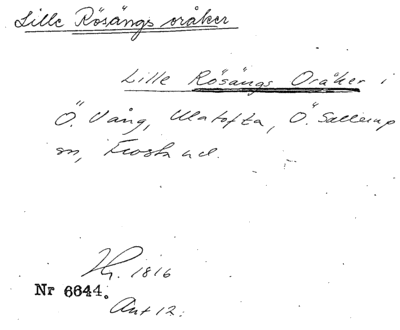 Lille Rösångs oråker
Lille Rösångs Oråker i
Ö. Vång, Ulatofta, Ö. Sallerup
sn, Frosta hd.
Hr. 1816
Nr 6644.
Ant 12.